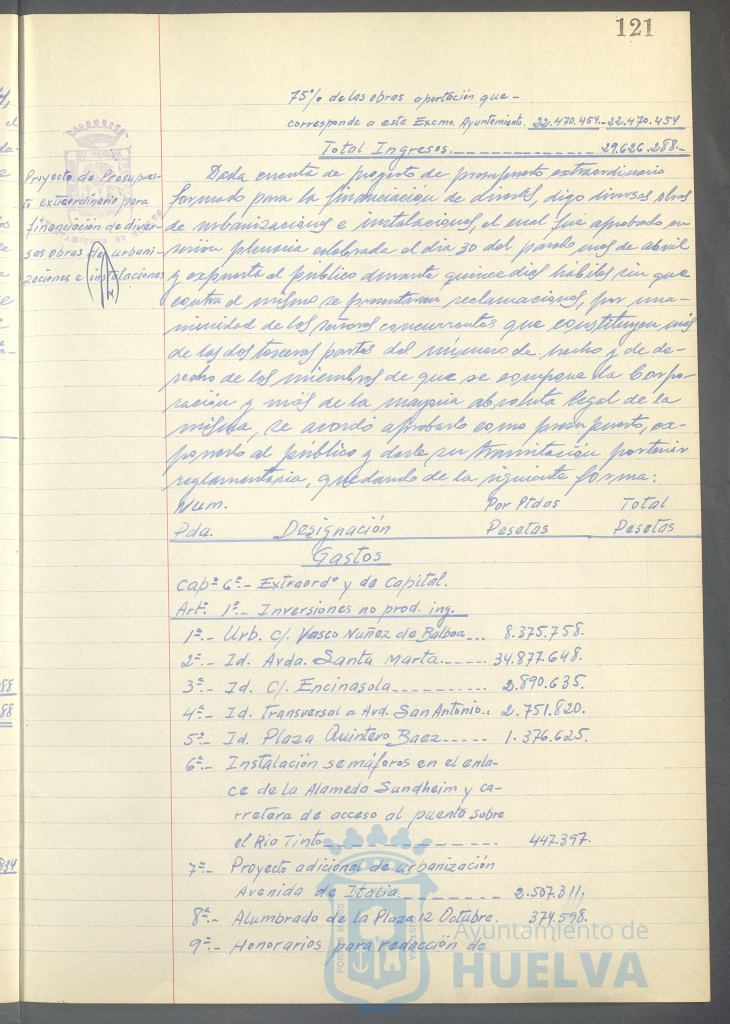 121
75% de las obras aportación que
corresponde a este Excmo. Ayuntamiento. 22.470.454.-22.470.454
Total Ingresos.---------- 29.626.288.-
Proyecto de Presupues-
to extraordinario para
financiación de diver-
sas obras de urbani-
zaciones e instalaciones
Dada cuenta de proyecto de presupuesto extraordinario
formado para la financiación de directas, digo diversas obras
de urbanizaciones e instalaciones, el cual fue aprobado en
sesion plenaria celebrada el dia 30 del pasado mes de abril
y expuesto al público durante quince dias hábiles sin que
contra el mismo se presentaran reclamaciones, por una-
nimidad de los señores concurrentes que constituyen más
de las dos terceras partes del número de hecho y de de-
recho de los miembros de que se compone la Corpo-
ración y más de la mayoria absoluta legal de la
misma, se acordó aprobarlo como presupuesto, ex-
ponerlo al público y darle su tramitación posterior
reglamentaria, quedando de la siguiente forma:
Num. Por Ptdas Total
Pda. Designación Pesetas Pesetas
Gastos
Capº 6º.- Extraordº y de Capital.
Artº. 1º.- Inversiones no prod. ing.
1ª.- Urb. c/. Vasco Nuñez de Balboa... 8.375.758.
2ª.- Id. Avda. Santa Marta.----- 34.877.648.
3ª.- Id. C/. Encinasola---------- 2.890.635.
4ª.- Id. transversal a Avd. San Antonio.: 2.751.820.
5ª.- Id. Plaza Quintero Baez----- 1.376.625.
6ª.- Instalación semáforos en el enla-
ce de la Alameda Sundheim y ca-
rretera de acceso al puente sobre
el Rio Tinto-------------- 447.397.
7ª.- Proyecto adicional de urbanización
Avenida de Italia---------- 2.507.311.
8ª.- Alumbrado de la Plaza 12 Octubre. 374.598.
9ª.- Honorarios para redacción de
Ayuntamiento de
HUELVA